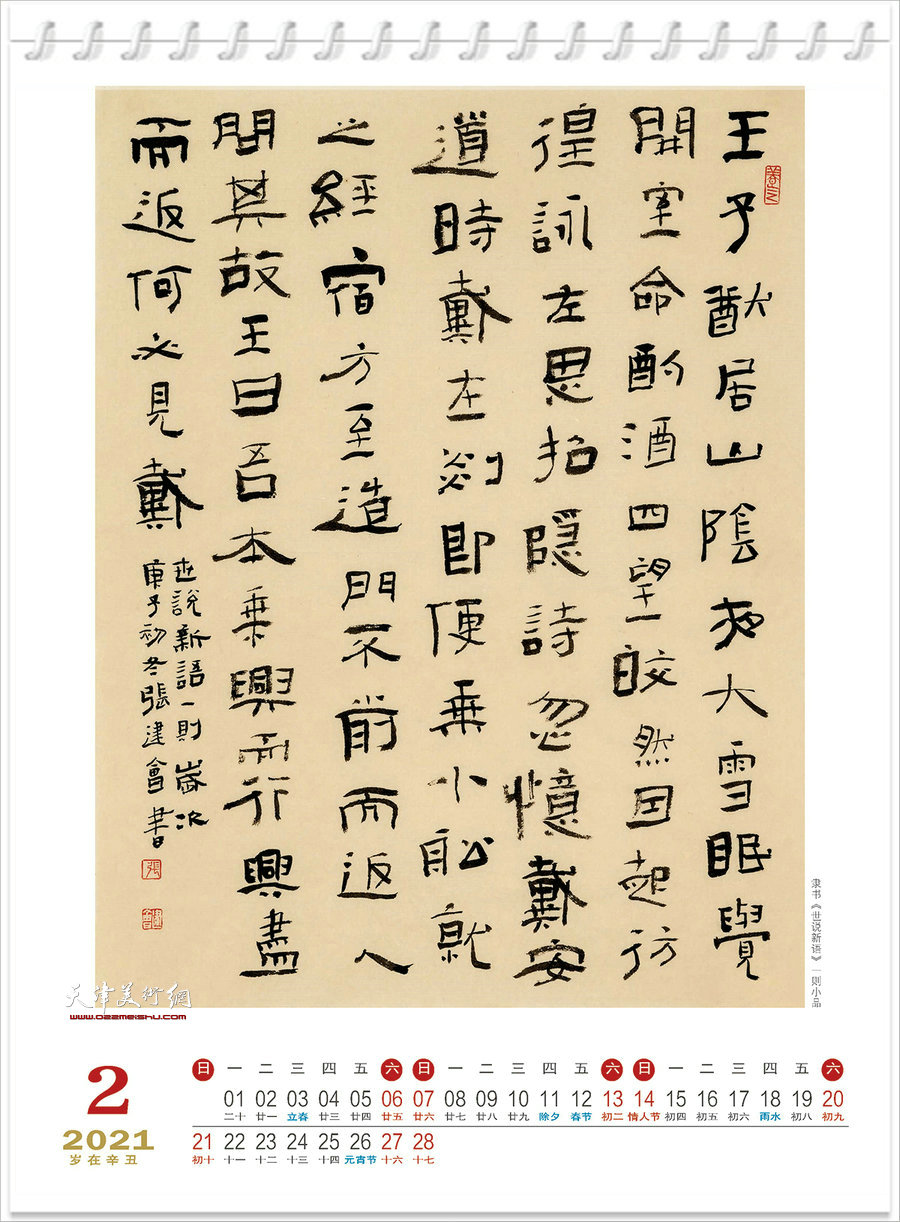 王子猷居山陰夜大雪眠覺
開室命酌酒四望皎然因起彷
徨詠左思招隱詩忽憶戴安
道時戴在剡即便乘小船就
之經宿方至造門不前而返人
問其故王曰吾本乘興而行興盡
而返何必見戴
世說新語一則歲次
庚子初冬張建會書
張
建會
隶书《世说新语》一则小品
天津美術網
www.022meishu.com
2
2021
岁在辛丑
日 一 二 三 四 五 六 日 一 二 三 四 五 六 日 一 二 三 四 五 六
01 02 03 04 05 06 07 08 09 10 11 12 13 14 15 16 17 18 19 20
二十 廿一 立春 廿三 廿四 廿五 廿六 廿七 廿八 廿九 除夕 春节 初二 情人节 初四 初五 初六 雨水 初八 初九
21 22 23 24 25 26 27 28
初十 十一 十二 十三 十四 元宵节 十六 十七